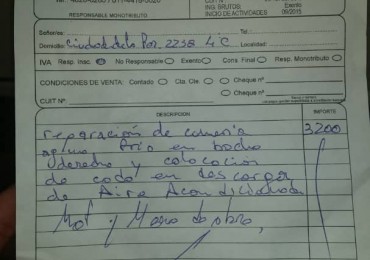 RESPONSABLE MONOTRIBUTO
ING. BRUTOS: Exento
INICIO DE ACTIVIDADES: 09/2015
Señores
Tel.:
Domicilio: Ciudad de la Paz 2238 4°C Localidad:
IVA: Resp. Insc. No Responsable Exento Cons. Final Resp. Monotributo
CONDICIONES DE VENTA: Contado Cta. Cte. Cheque nº
Cheque nº
CUIT Nº
DESCRIPCION IMPORTE
reparación de cañeria 3200
agua fria en
y colocacion
de codo en descarga
de Aire Acondicionado
Mat y Mano de obra,